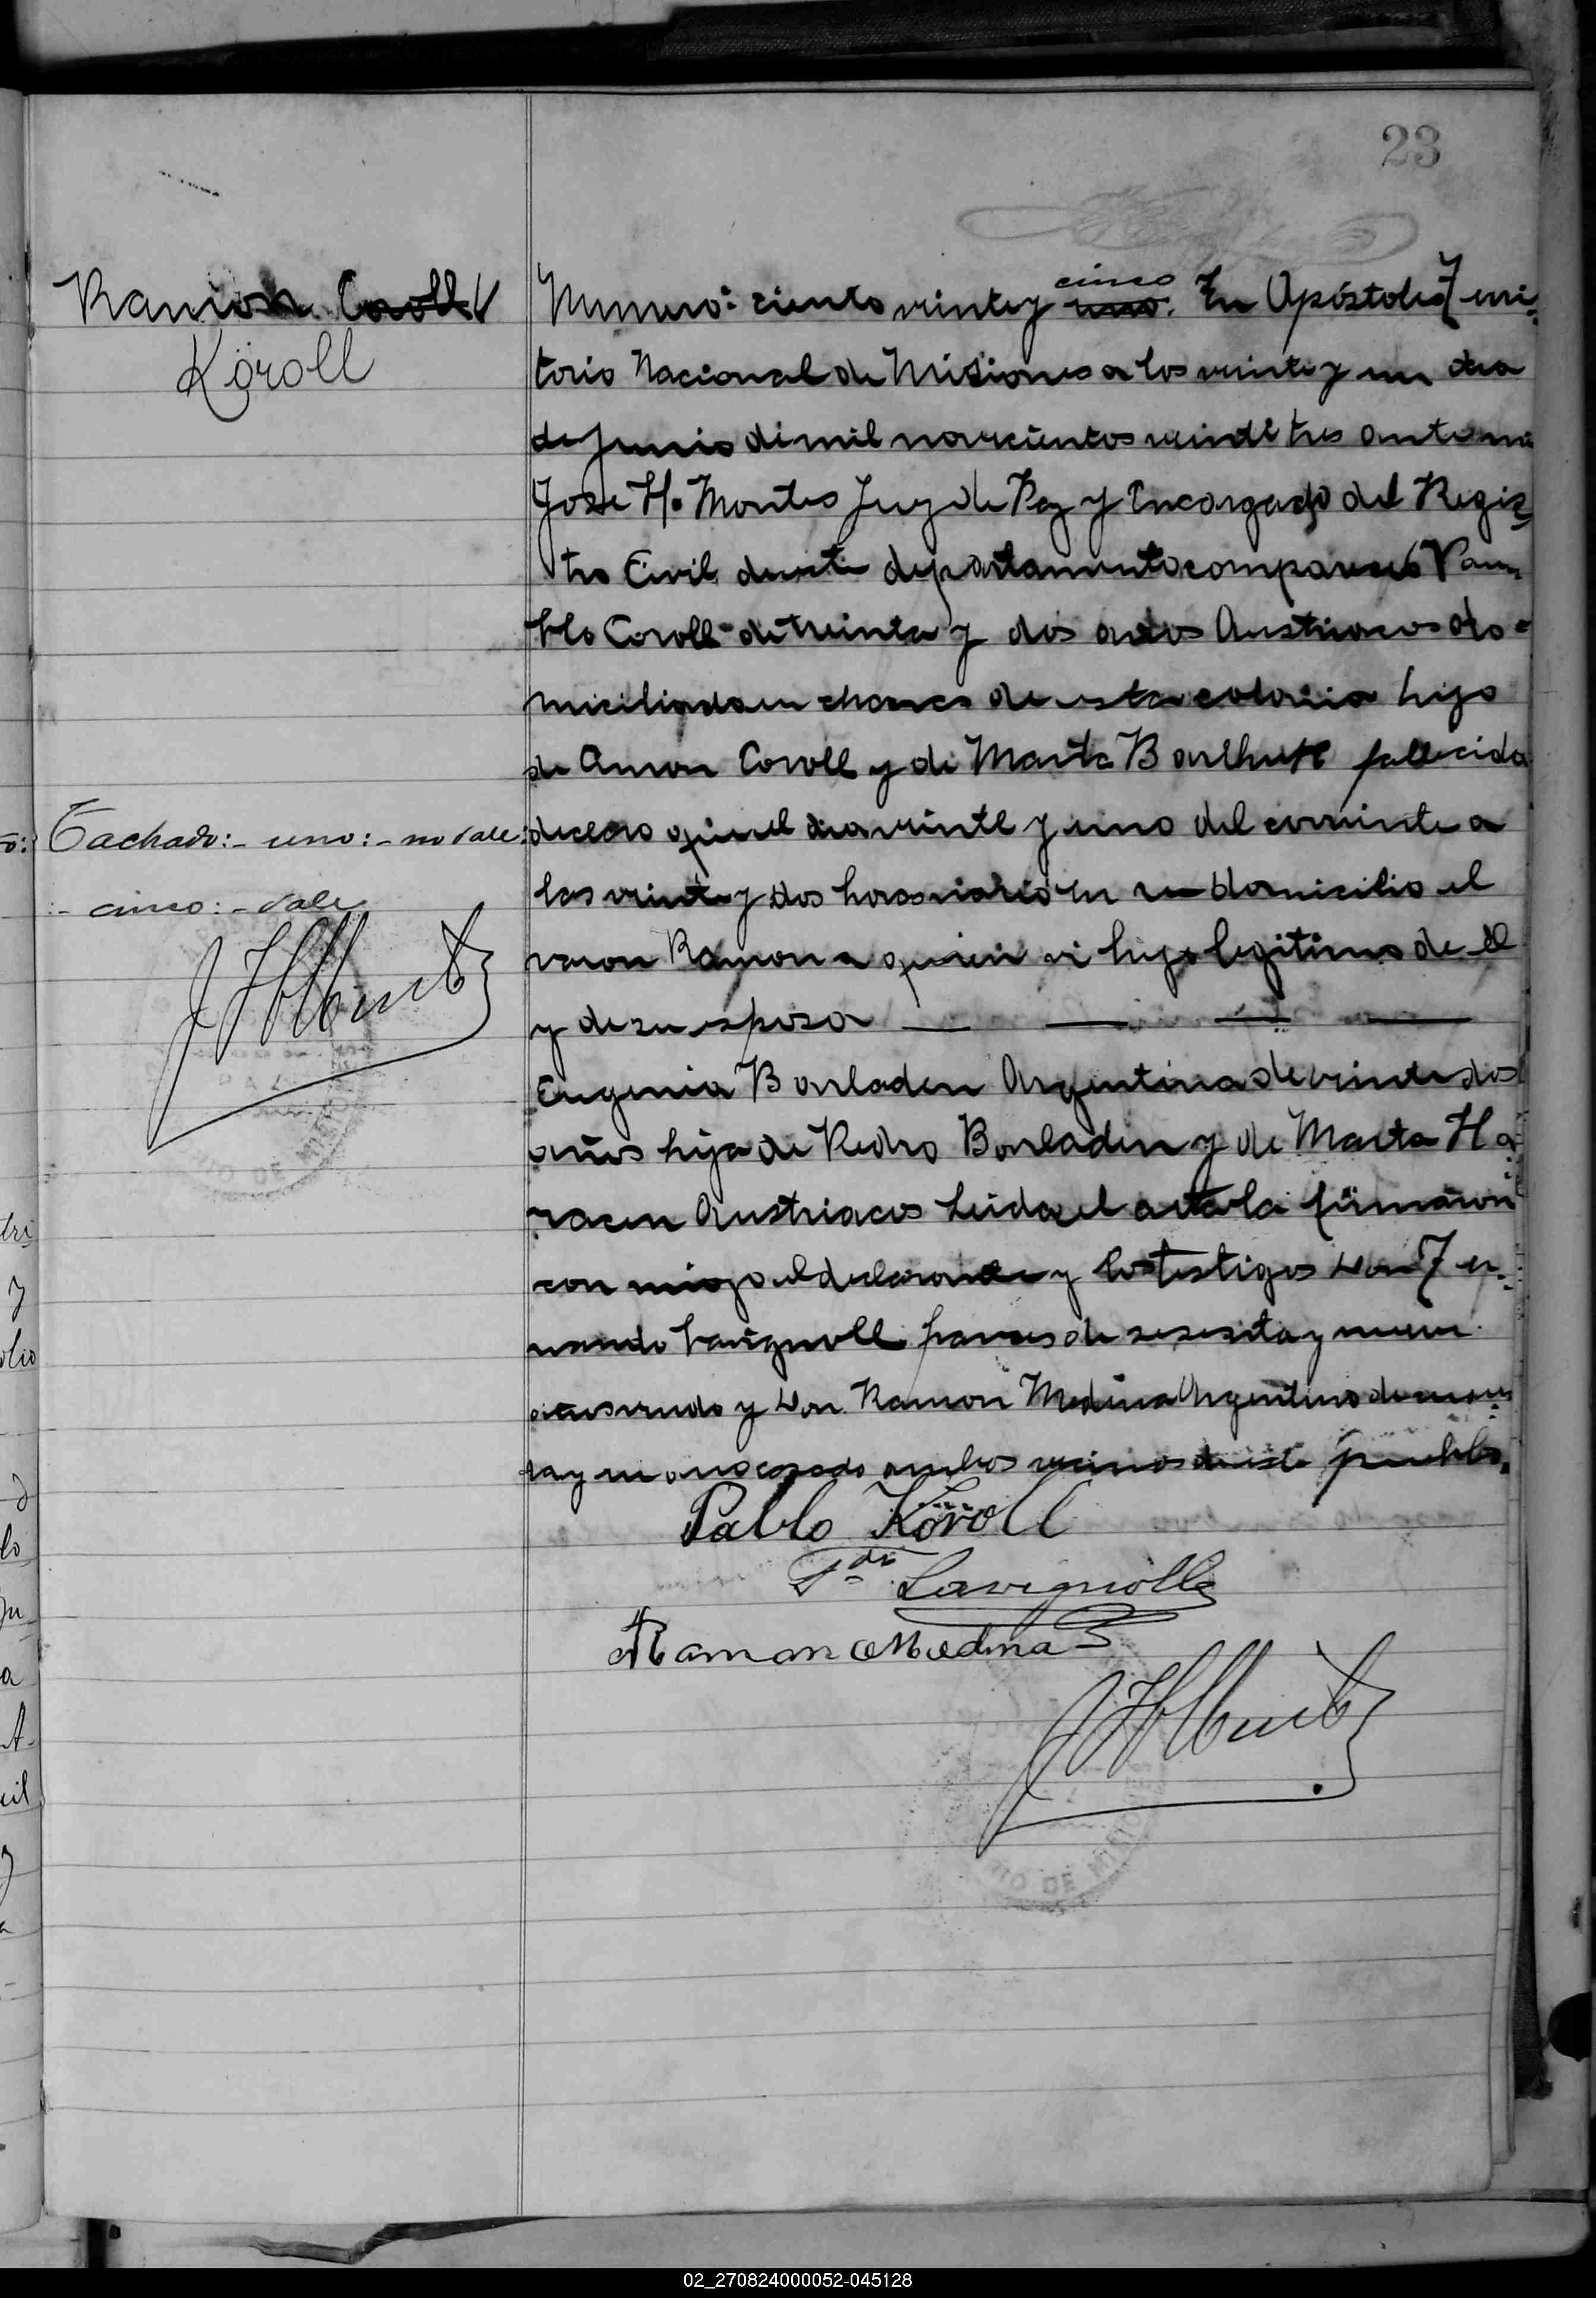 23
Ramon Coroll
Köroll
Numero: ciento veinte y uno. cinco En Apóstoles Terri-
torio Nacional de Misiones a los veinte y un dia
de Junio de mil novecientos veinti tres ante mi
Jose H. Montes Juez de Paz y Encargado del Regis-
tro Civil de este departamento comparecio Pa
blo Coroll de treinta y dos años Austriacos do-
miciliado en chacra de esta colonia hijo
de Coroll y de Marta fallecida
declaro que el dia veinte y uno del corriente a
las veinte y dos horas nacio en su domicilio el
varon Ramon a quien vi hijo legitimo de el
y de su esposa
Eugenia Barladen Argentina de veinte dos
años hija de Pedro Borladen y de Marta Ha-
racen Austriacos Leida el acta la firmaron
con migo el declarante y los testigos Don Fer-
nando Lavignoll frances de sesenta y nueve
años viudo y Don Ramon Medina Argentino de
ta y un ano casado ambos vecinos de este pueblo.
Tachado:- uno:- no vale:
:- cinco:- vale
J H Montes
Pablo Köroll
Fdo Lavignolle
Ramon Medina
J H Montes
02_270824000052-045128